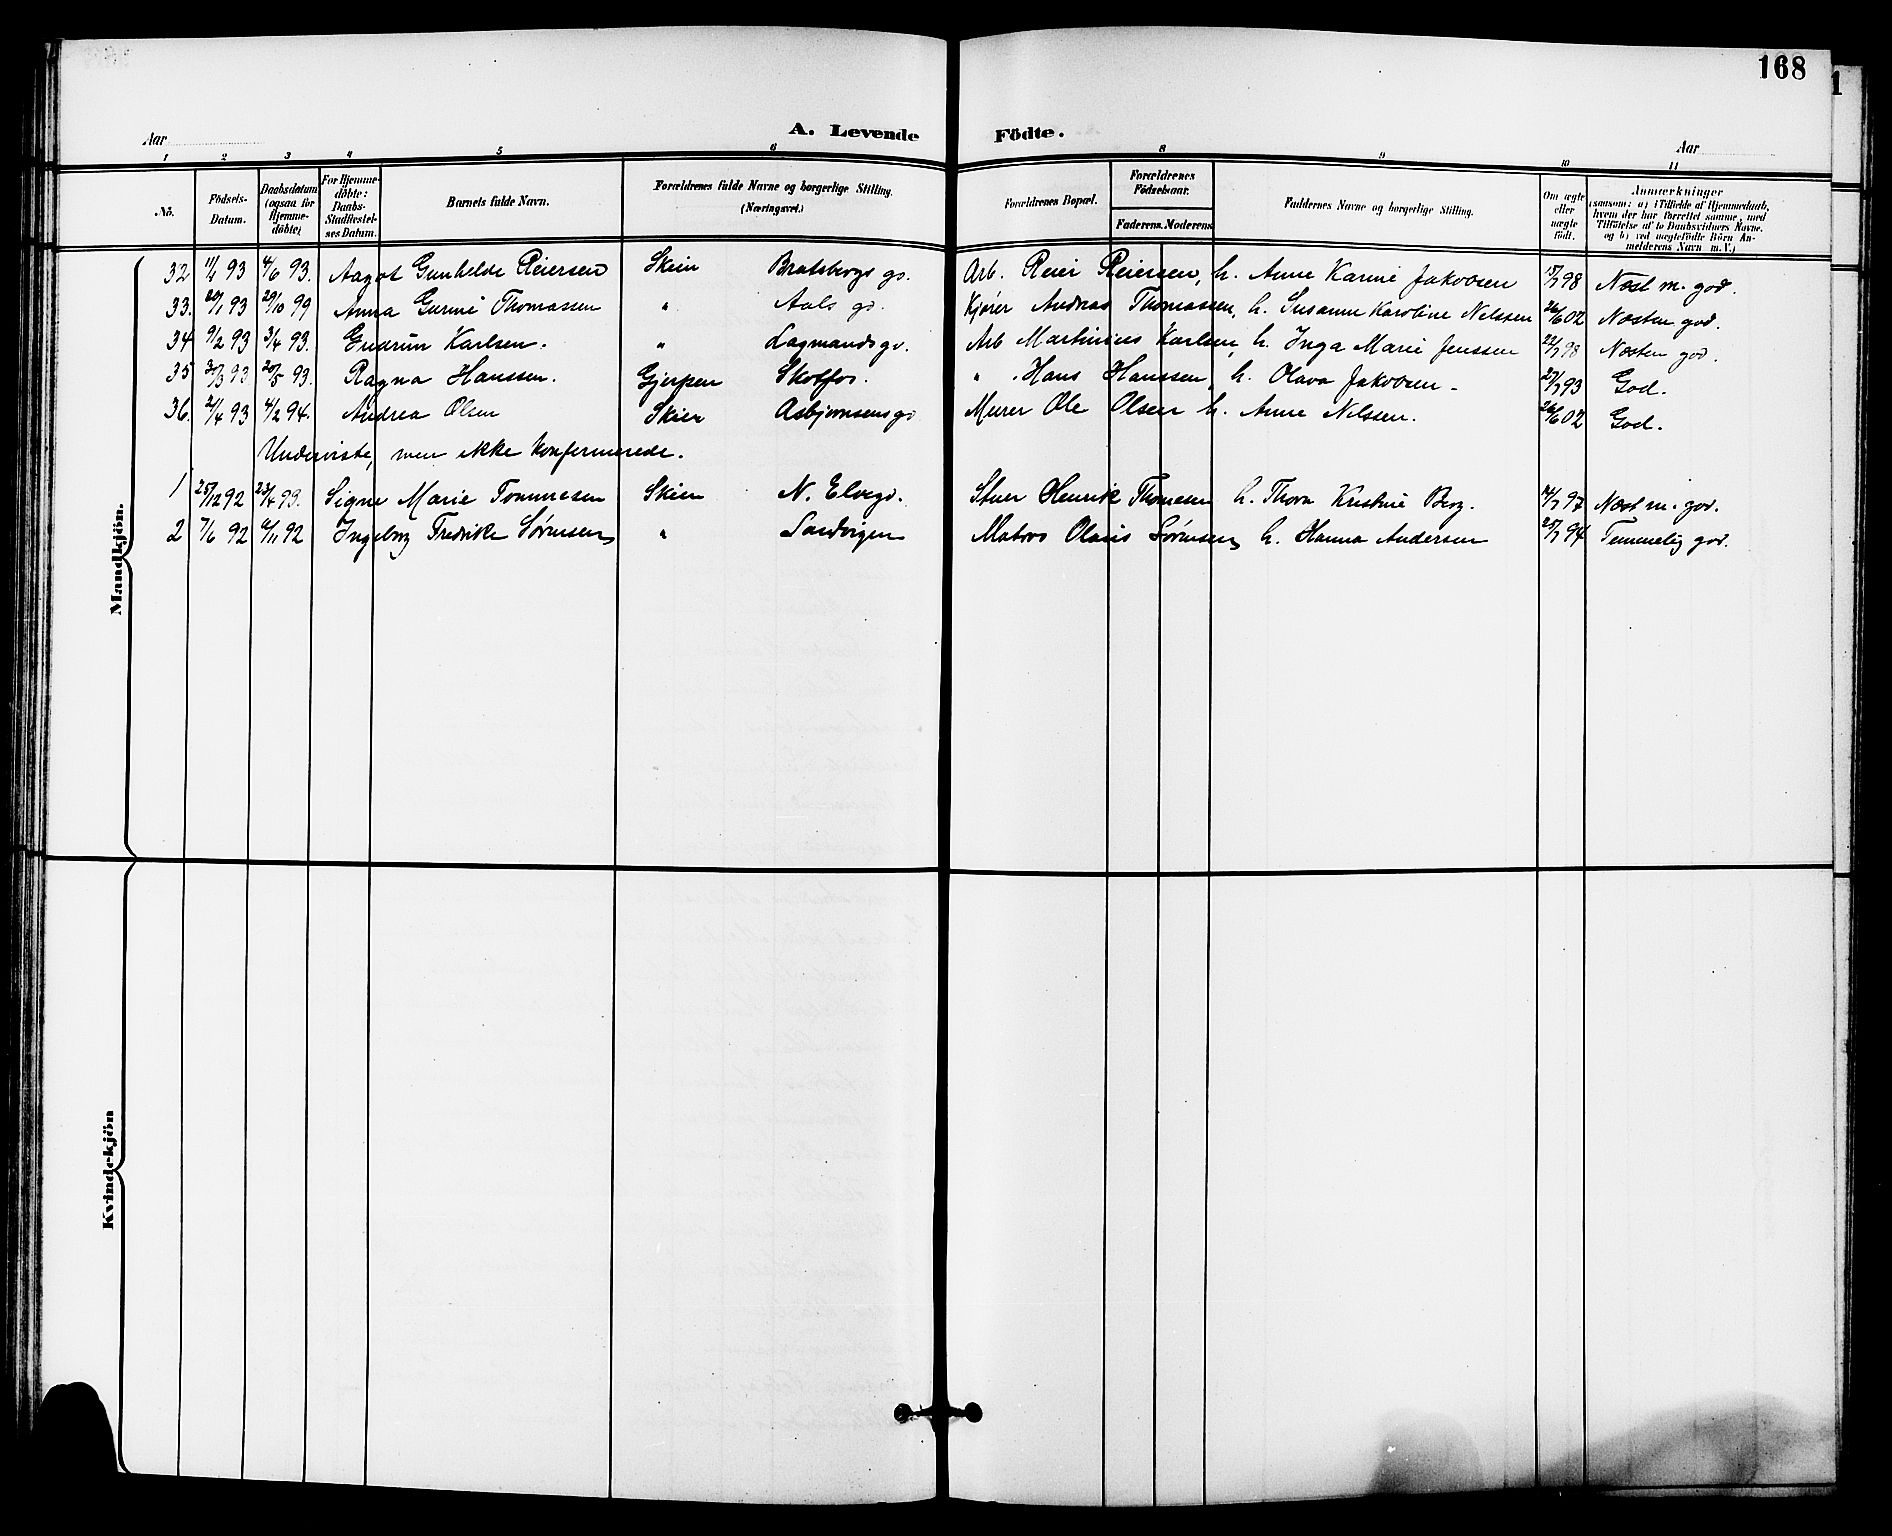 168
Aar
A. Levende Födte.
Aar
1 2 3 4 5 6 8 9 10 11
Nö.
Födsels-Datum.
Daabsdatum (ogsaa for Hjemme-döbte)
For Hjemme-döbte: Daabs-Stadfæstel-ses Datum.
Barnets fulde Navn.
Forældrenes fulde Navne og borgerlige Stilling. (Næringsvei.)
Forældrenes Bopæl.
Forældrenes Födselsaar.
Faderens. Moderens.
Faddernes Navne og borgerlige Stilling.
Om ægte eller uægte födt.
Anmærkninger
(saasom: a) i Tilfælde af Hjemmedaab, hvem der har forrettet samme, med Tilföielse af to Daabsvidners Navne. og b) ved uægtefödte Börn An-melderens Navn m. V.)
32 11/4 93 4/6 93. Aagot Gunhilde Reiersen Skien Bratsbergs gs. Arb. Reier Reiersen, h. Anne Karine Jakobsen 15/7 98 Næst m. god.
33. 20/1 93 29/10 99 Anna Gurine Thomassen " Aals gd. Kjører Andreas Thomassen, h. Susanne Karoline Nelssen 26/6 02 Næsten god.
34 9/2 93 3/4 93. Gudrun Karlsen. " Lagmandsgd. Arb Martinius Karlsen, h. Inga Marie Jenssen 22/7 98 Næsten god.
35 30/3 93 20/5 93. Ragna Hanssen. Gjerpen Skotfos. " Hans Hanssen, h. Olava Jakobsen - 27/7 93 God.
36. 2/4 93 4/2 94. Andrea Olsen Skien Asbjørnsensgd Murer Ole Olsen h. Anne Nelssen. 26/6 02 God.
Underviste, men ikke konfermerede.
1 25/12 92 23/4 93. Signe Marie Tommesen Skien N. Elvegd. Stuer Henrik Thomesen h. Thora Kristine Berg. 4/7 97 Næst m. god.
2 7/6 92 6/11 92 Ingeborg Fredrikke Sørensen " Sandvigen Matros Olaus Sørensen, h. Hanna Andersen 25/7 94 Temmelig god.
Mandkjön.
Kvindekjön